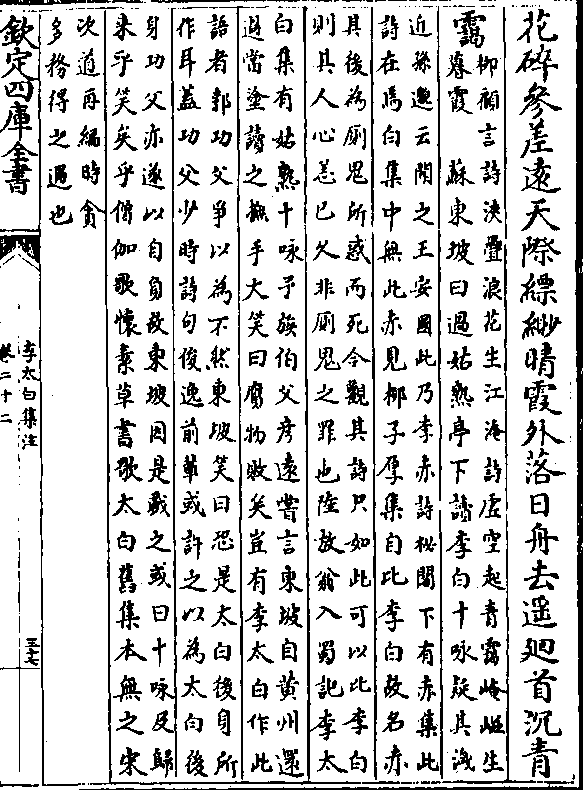 花碎參差遠天際縹緲晴霞外落日舟去遥迴首沉青
靄
柳顧言詩浹疊浪花生江淹詩虛空起青靄崦嵫生
暮霞　蘇東坡曰過姑熟亭下讀李白十咏疑其淺
近孫邈云聞之王安國此乃李赤詩秘閣下有赤集此
詩在焉白集中無此赤見柳子厚集自比李白故名赤
其後為厠鬼所惑而死今觀其詩只如此可以比李白
則其人心恙已久非厠鬼之罪也陸放翁入蜀記李太
白集有姑熟十咏予族伯父彦遠嘗言東坡自黄州還
過當塗讀之撫手大笑曰贗物敗矣豈有李太白作此
語者郭功父爭以為不然東坡笑曰恐是太白後身所
作耳蓋功父少時詩句俊逸前輩或許之以為太白後
身功父亦遂以自負故東坡因是戲之或曰十咏及歸
来乎笑矣乎僧伽歌懷素草書歌太白舊集本無之宋
次道再編時貪
多務得之過也
欽定四庫全書
李太白集注
卷二十二
三十七